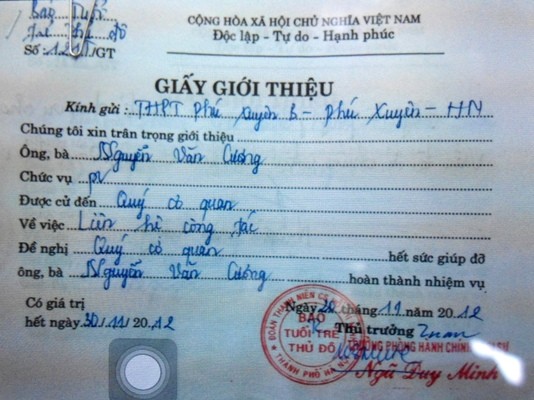 Báo Tuổi
CỘNG HÒA XÃ HỘI CHỦ NGHĨA VIỆT NAM
Độc lập - Tự do - Hạnh phúc
Số: /GT
GIẤY GIỚI THIỆU
Kính gửi: THPT Phú Xuyên B - Phú Xuyên - HN
Chúng tôi xin trân trọng giới thiệu
Ông, bà Nguyễn Văn Cương
Chức vụ pv
Được cử đến Quý cơ quan
Về việc Liên hệ công tác
Đề nghị Quý cơ quan hết sức giúp đỡ
ông, bà Nguyễn Văn Cương hoàn thành nhiệm vụ
Có giá trị
hết ngày 30/11/2012
Ngày 20 tháng 11 năm 2012
Thủ trưởng
TRƯỞNG PHÒNG HÀNH CHÍNH
Ngã Duy Minh
BÁO
TUỔI TRẺ
THỦ ĐÔ